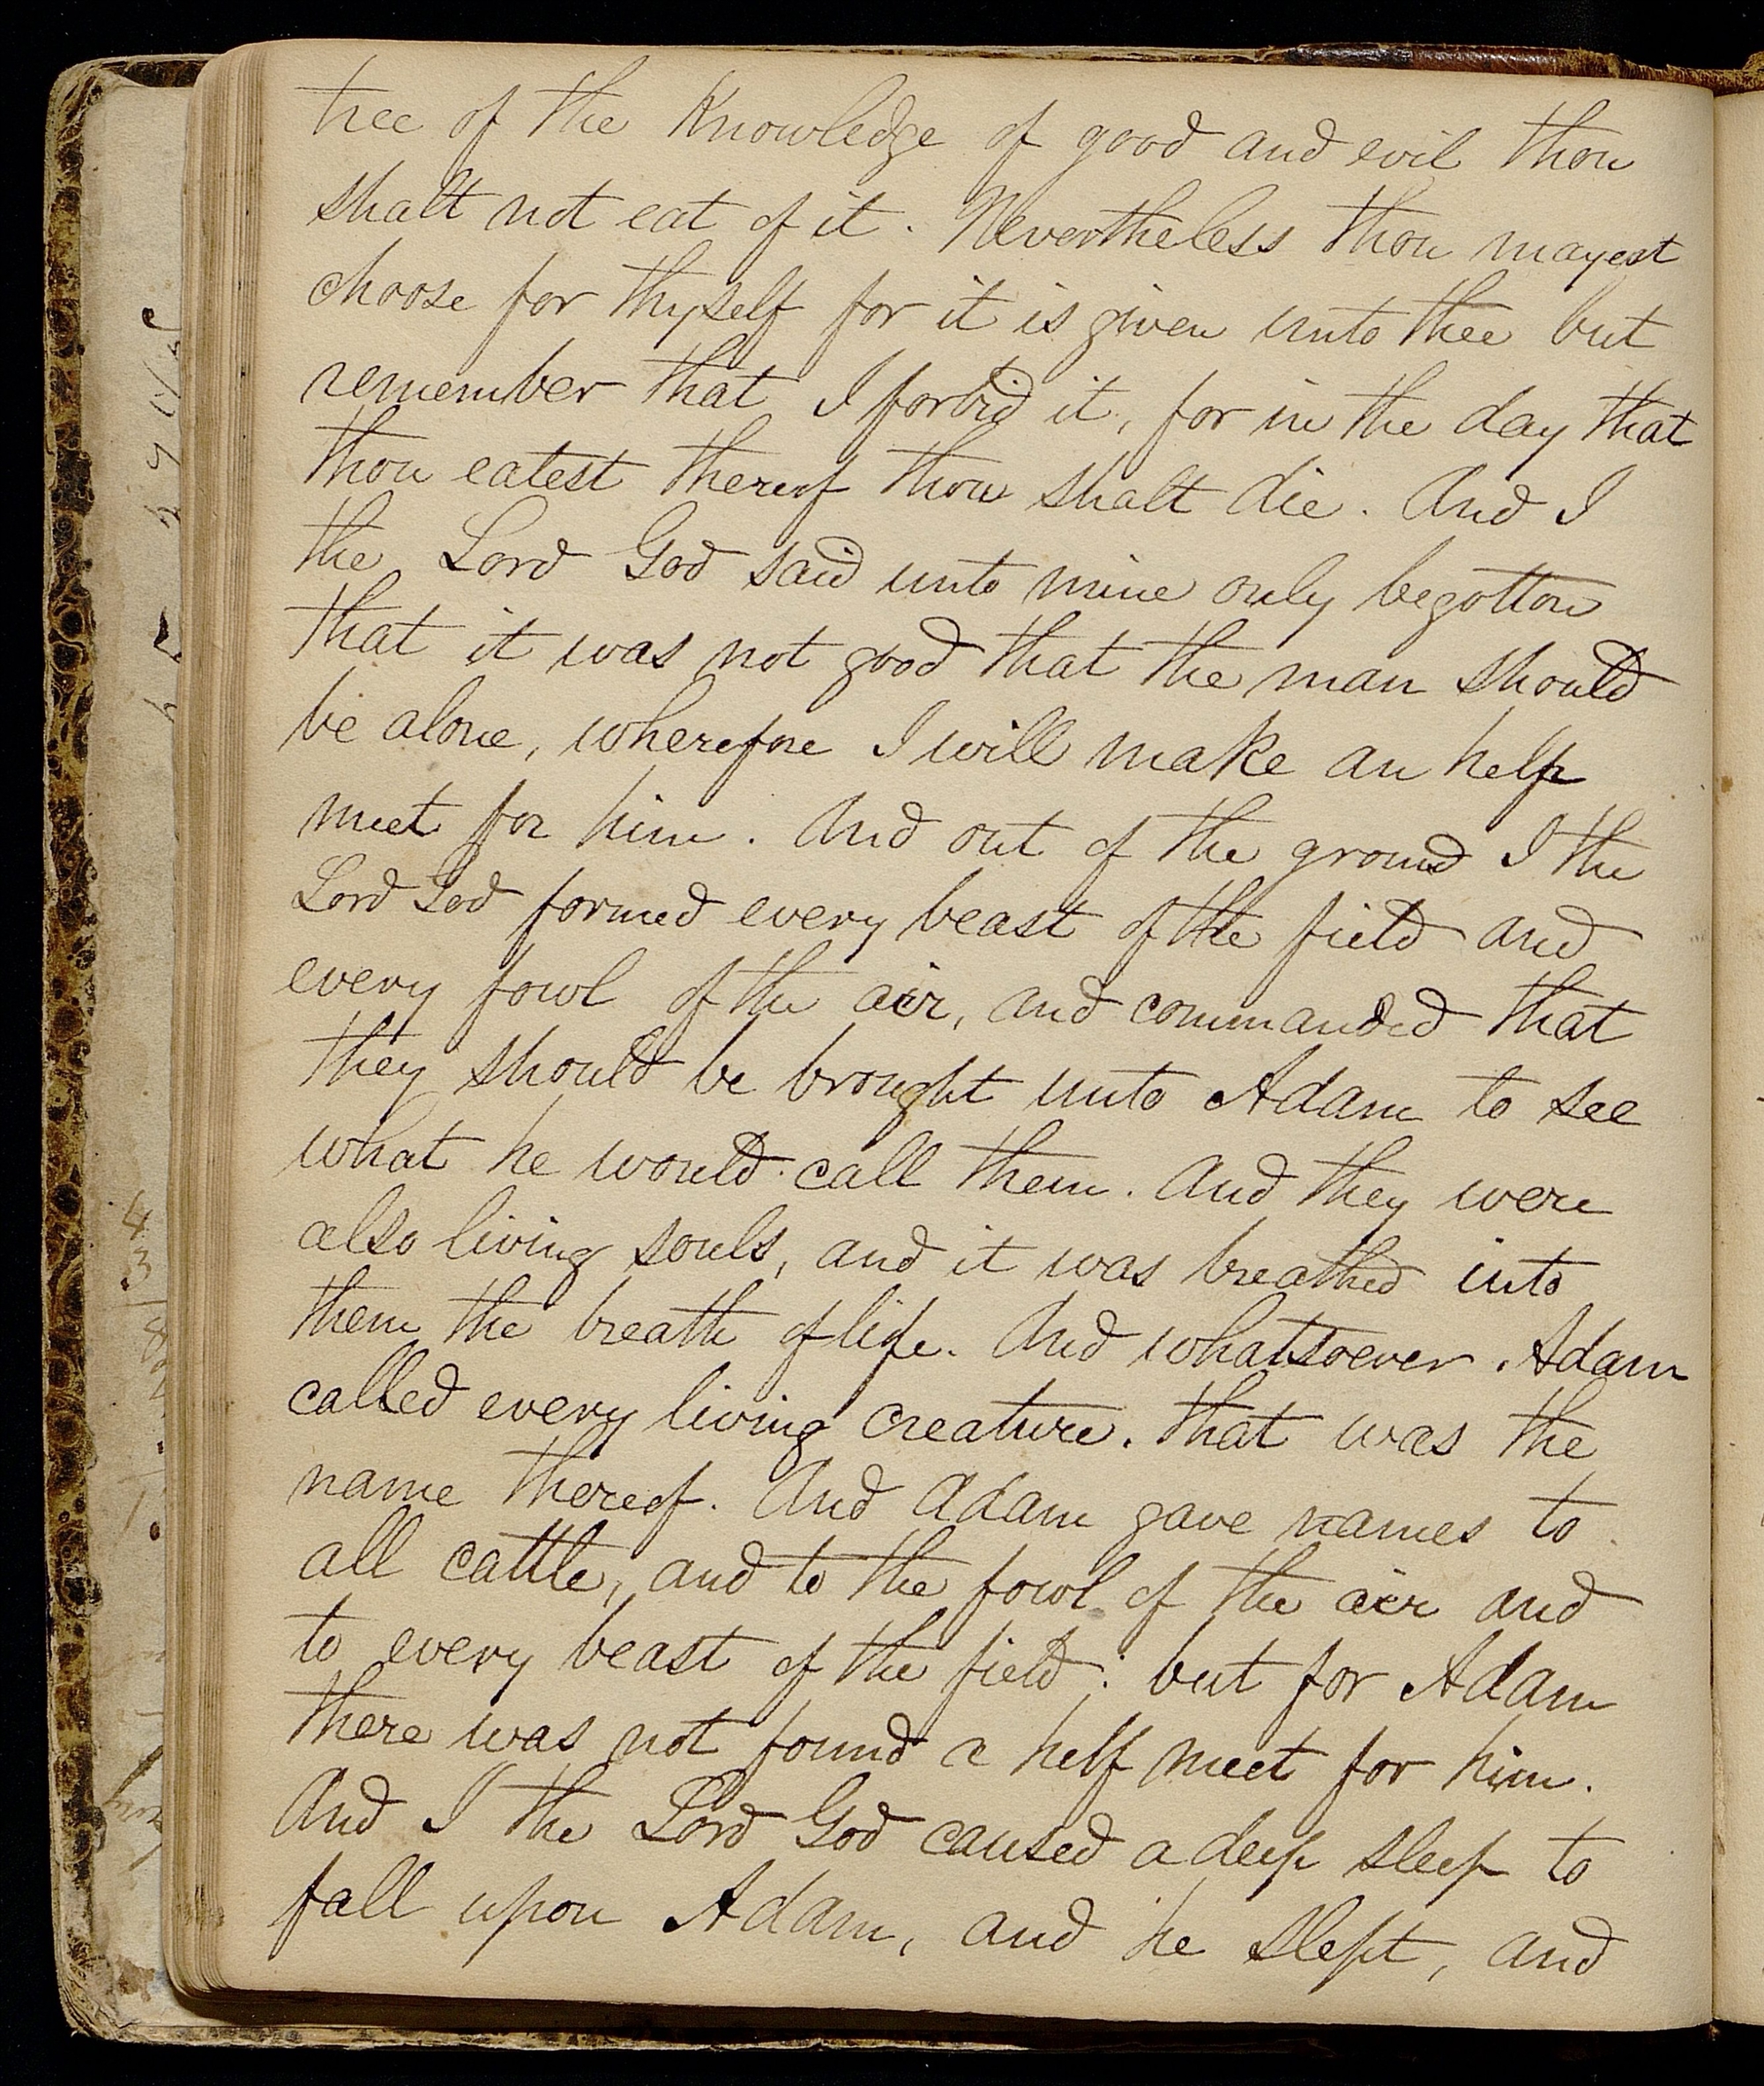 tree of the Knowledge of good and evil thou
shalt not eat of it. Nevertheless thou mayest
choose for thyself for it is given unto thee but
remember that I forbid it, for in the day that
thou eatest thereof thou shalt die. And I
the Lord God said unto mine only begotton
that it was not good that the man should
be alone, wherefore I will make an help
meet for him. And out of the ground I the
Lord God formed every beast of the field and
every fowl of the air, and commanded that
they should be brought unto Adam to see
what he would call them. And they were
also living souls, and it was breathed into
them the breath of life. And whatsoever Adam
called every living creature. that was the
name thereof. And Adam gave names to
all cattle, and to the fowl of the air and
to every beast of the field; but for Adam
there was not found a help meet for him.
And I the Lord God caused a deep sleep to
fall upon Adam, and he slept, and
4
3